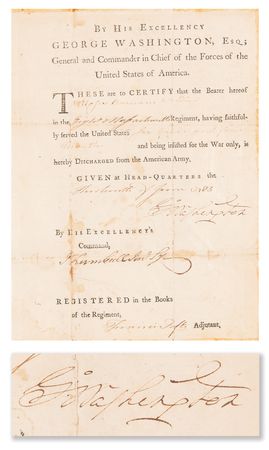 By His EXCELLENCY
GEORGE WASHINGTON, Esq;
General and Commander in Chief of the Forces of the
United States of America.
THESE are to CERTIFY that the Bearer hereof
in the Regiment, having faithful-
ly served the United States
and being inlisted for the War only, is
hereby DISCHARGED from the American Army.
GIVEN at HEAD-QUARTERS the
of June 1783
Go Washington
By HIS EXCELLENCY'S
Command,
REGISTERED in the Books
of the Regiment,
Adjutant,
Go Washington